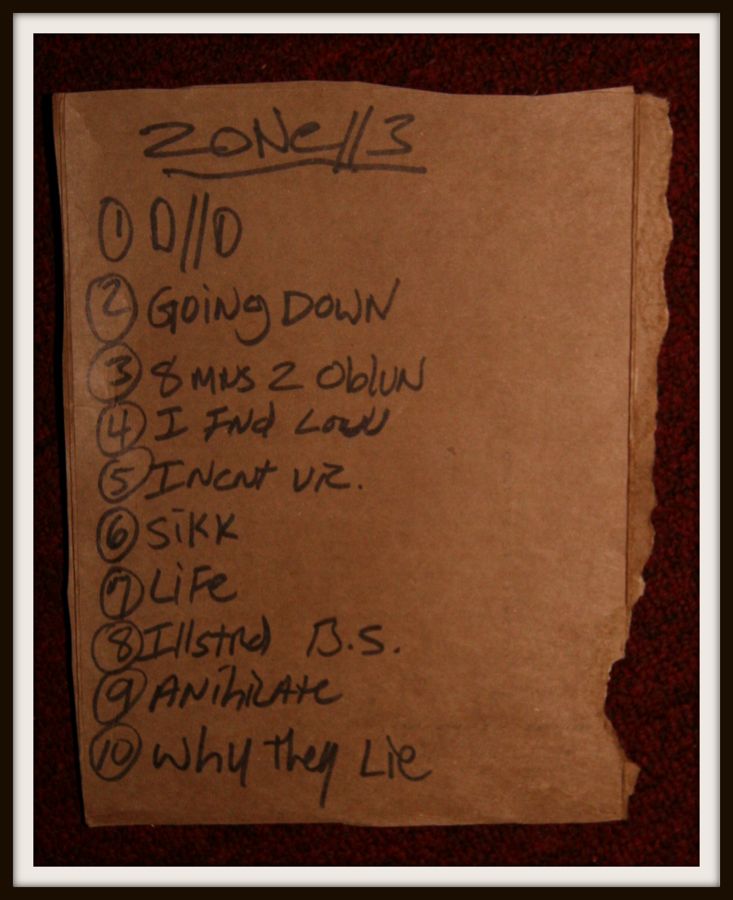 ZONe//3
1 D//D
2 GoiNg DOWN
3 8 MNS 2 OblUN
4 I FNd
5 INcNt VR.
6 SiKK
7 LiFe
8 Illstrd B.S.
9 ANihilAte
10 Why They Lie